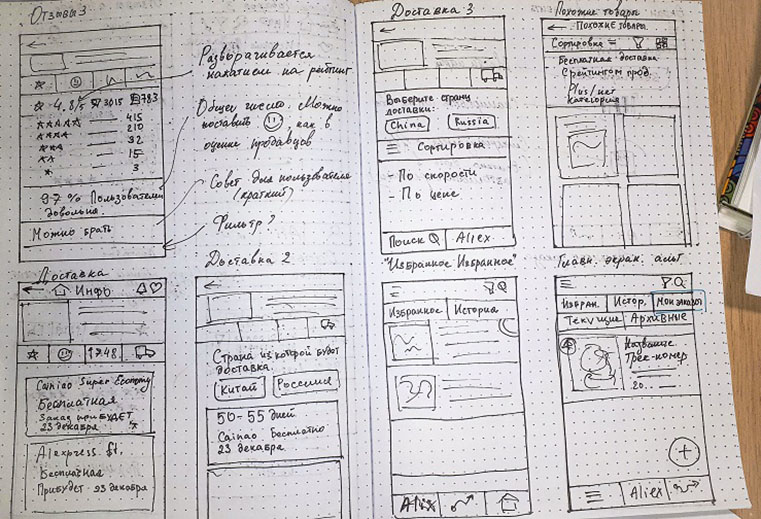 Отзывы 3
4.8/5 3015 783
415
210
32
15
3
97 % Пользователей
довольна.
Можно брать
Разворачивается
нажатием на рейтинг
Общее число. Можно
поставить как в
оценке продавцов
Совет для пользователя
(краткий)
Фильтр?
Доставка 3
Выберите страну
доставки:
China Russia
Сортировка
- По скорости
- По цене
Поиск Aliex
Похожие товары
← ПОХОЖИЕ ТОВАРЫ
Сортировка
Бесплатная доставка
С рейтингом прод.
Plus/нет
категория
Доставка
← Инфо
17.48
Cainiao Super Economy
Бесплатная
Заказ прибудет
23 декабря
Aliexpress st.
Бесплатная
Прибудет - 23 декабря
Доставка 2
Страна из которой будет
доставка
Китай Россия
50-55 дней
Cainao Бесплатно
23 декабря
"Избранное Избранное"
Избранное История
Aliex
Главн. экран. альт
Избран. Истор. Мои заказы
Текущие Архивные
Название
Трек-номер
20.
Aliex